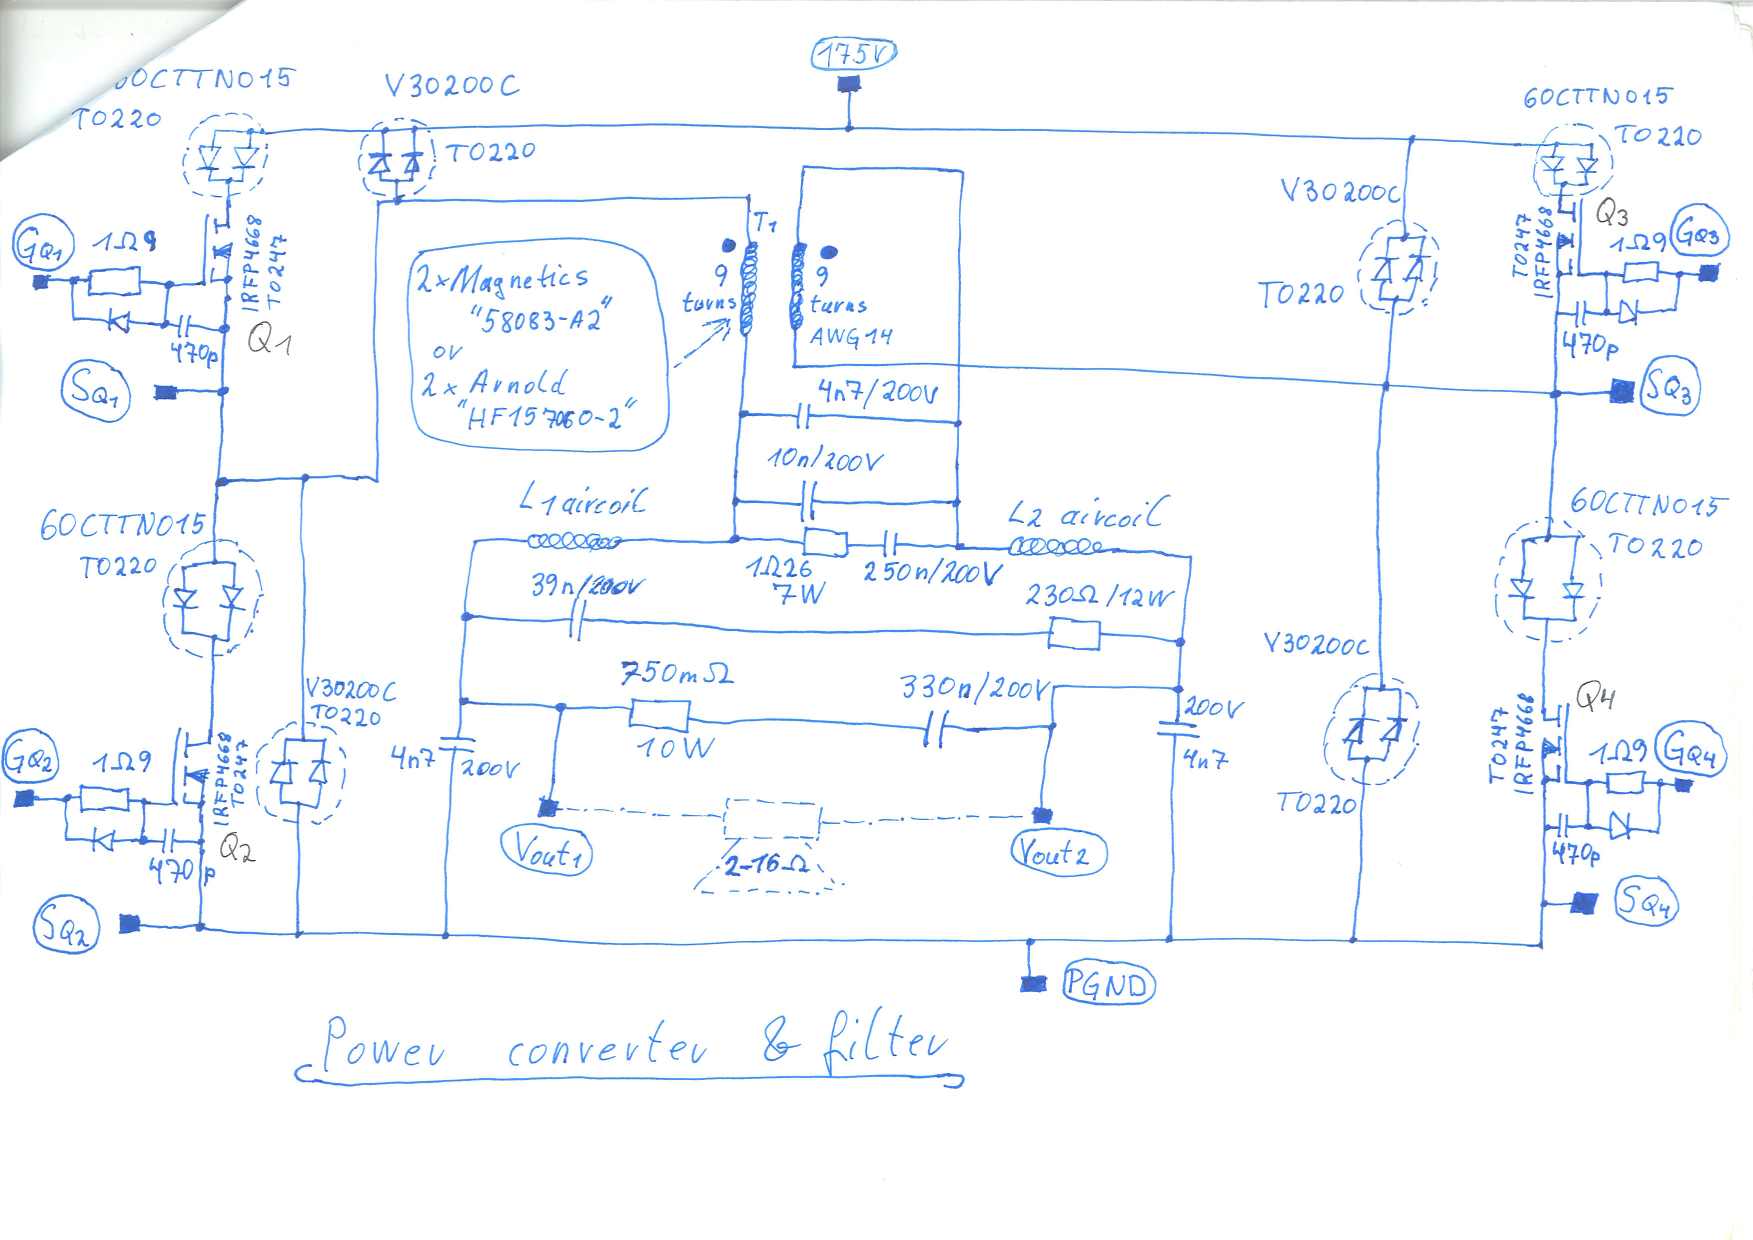 175V
60CTTN015
TO220
V30200C
TO220
60CTTN015
TO220
V30200C
TO220
GQ1
1Ω9
IRFP4668
TO247
470p
Q1
SQ1
T1
9
turns
9
turns
AWG14
2×Magnetics
"58083-A2"
or
2× Arnold
"HF157060-2"
TO247
IRFP4668
Q3
1Ω9
GQ3
470p
SQ3
4n7/200V
10n/200V
L1 aircoil
L2 aircoil
1Ω26
7W
250n/200V
39n/200V
230Ω/12W
60CTTN015
TO220
60CTTN015
TO220
V30200C
TO220
V30200C
TO220
750mΩ
10W
330n/200V
4n7
200V
200V
4n7
GQ2
1Ω9
IRFP4668
TO247
470p
Q2
SQ2
Vout1
2-16Ω
Vout2
TO247
IRFP4668
Q4
1Ω9
GQ4
470p
SQ4
PGND
Power converter & filter